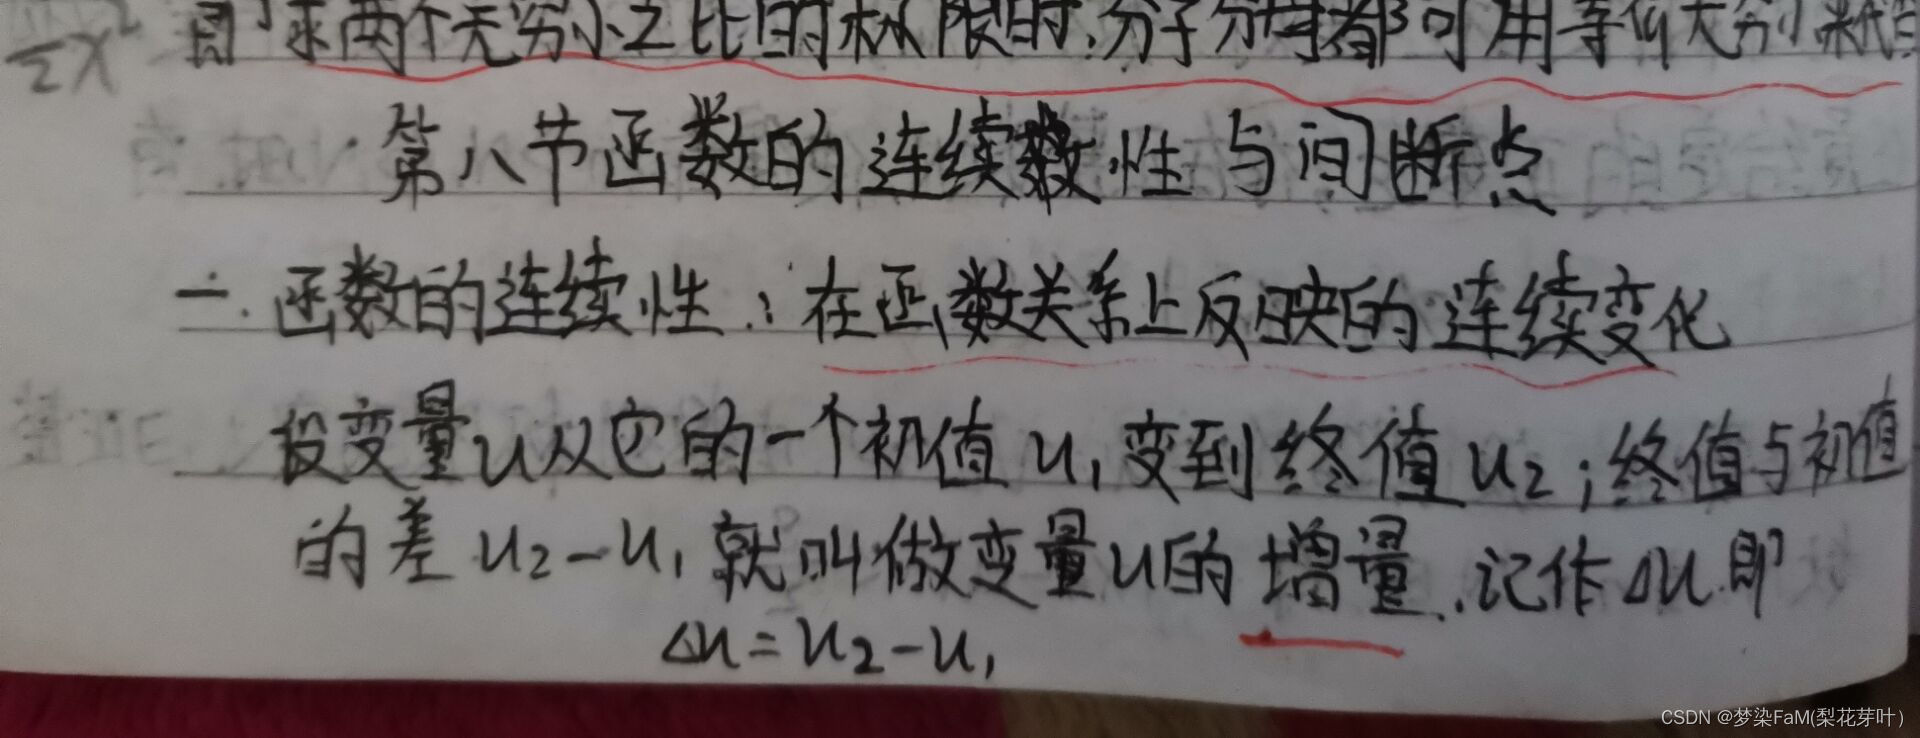 即求两个无穷小之比的极限时,分子分母都可用等价无穷小来代
第八节函数的连续性与间断点
一.函数的连续性:在函数关系上反映的连续变化
设变量u从它的一个初值u₁变到终值u₂;终值与初值
的差u₂-u₁就叫做变量u的增量.记作Δu.即
Δu=u₂-u₁
CSDN @梦染FaM(梨花芽叶)